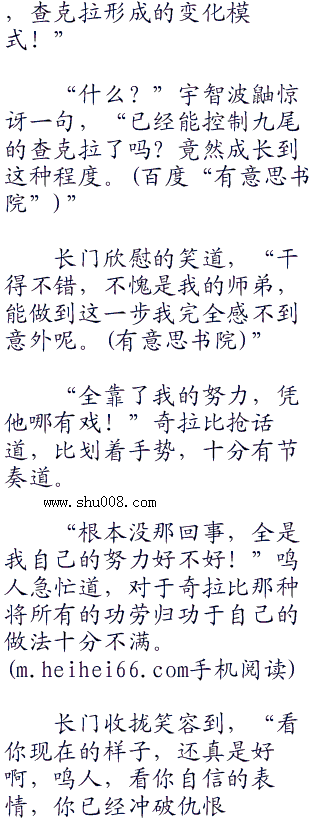 ，查克拉形成的变化模
式！”
“什么？”宇智波鼬惊
讶一句，“已经能控制九尾
的查克拉了吗？竟然成长到
这种程度。(百度“有意思书
院”)”
长门欣慰的笑道，“干
得不错，不愧是我的师弟，
能做到这一步我完全感不到
意外呢。(有意思书院)”
“全靠了我的努力，凭
他哪有戏！”奇拉比抢话
道，比划着手势，十分有节
奏道。
www.shu008.com
“根本没那回事，全是
我自己的努力好不好！”鸣
人急忙道，对于奇拉比那种
将所有的功劳归功于自己的
做法十分不满。
(m.heihei66.com手机阅读)
长门收拢笑容到，“看
你现在的样子，还真是好
啊，鸣人，看你自信的表
情，你已经冲破仇恨